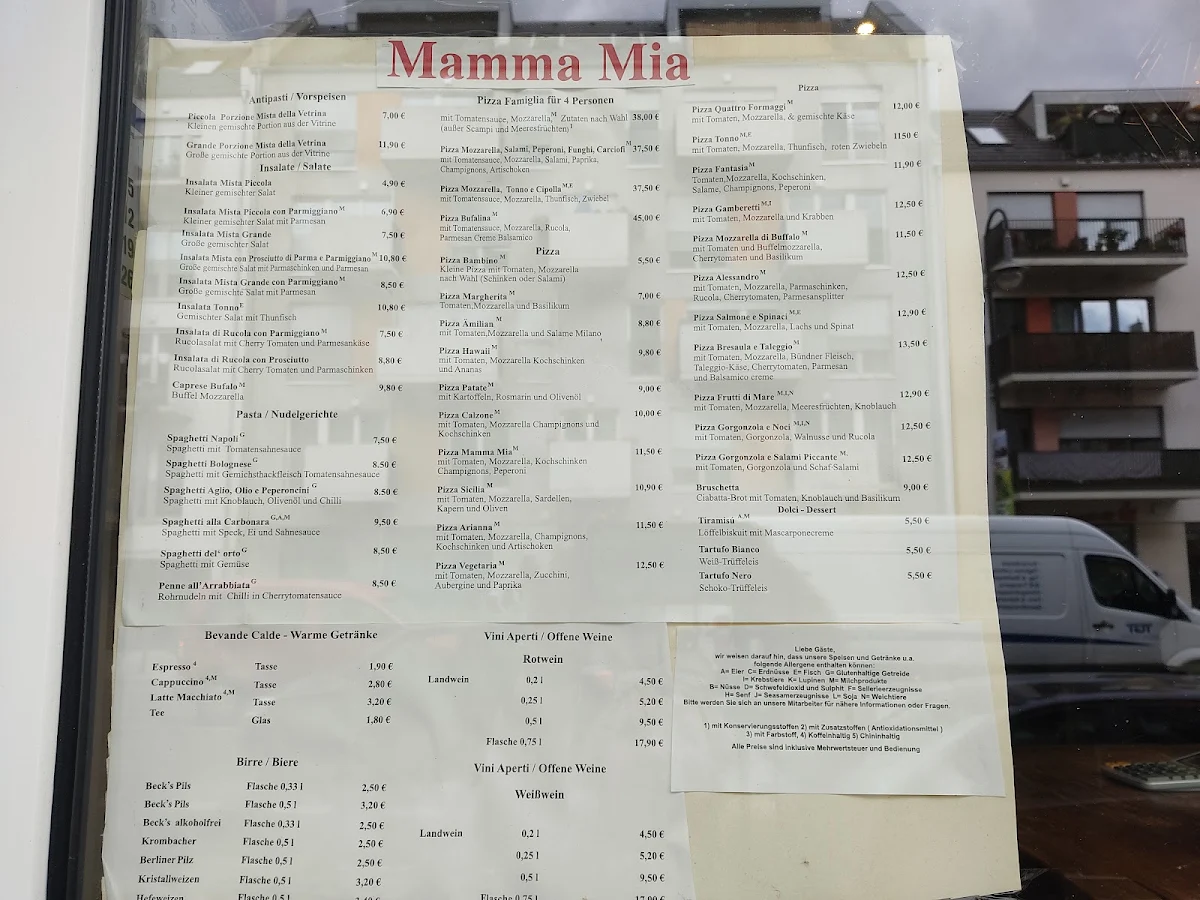 Mamma Mia
Antipasti / Vorspeisen
Piccola Porzione Mista della Vetrina 7,00 €
Kleinen gemischte Portion aus der Vitrine
Grande Porzione Mista della Vetrina 11,90 €
Große gemischte Portion aus der Vitrine
Insalate / Salate
Insalata Mista Piccola 4,90 €
Kleiner gemischter Salat
Insalata Mista Piccola con Parmiggiano M 6,90 €
Kleiner gemischter Salat mit Parmesan
Insalata Mista Grande 7,50 €
Große gemischter Salat
Insalata Mista con Prosciutto di Parma e Parmiggiano M 10,80 €
Große gemischte Salat mit Parmaschinken und Parmesan
Insalata Mista Grande con Parmiggiano M 8,50 €
Große gemischte Salat mit Parmesan
Insalata Tonno E 10,80 €
Gemischter Salat mit Thunfisch
Insalata di Rucola con Parmiggiano M 7,50 €
Rucolasalat mit Cherry Tomaten und Parmesankäse
Insalata di Rucola con Prosciutto 8,80 €
Rucolasalat mit Cherry Tomaten und Parmaschinken
Caprese Bufalo M 9,80 €
Buffel Mozzarella
Pasta / Nudelgerichte
Spaghetti Napoli G 7,50 €
Spaghetti mit Tomatensahnesauce
Spaghetti Bolognese G 8.50 €
Spaghetti mit Gemichsthackfleisch Tomatensahnesauce
Spaghetti Aglio, Olio e Peperoncini G 8.50 €
Spaghetti mit Knoblauch, Olivenöl und Chilli
Spaghetti alla Carbonara G,A,M 9,50 €
Spaghetti mit Speck, Ei und Sahnesauce
Spaghetti del' orto G 8,50 €
Spaghetti mit Gemüse
Penne all'Arrabbiata G 8,50 €
Rohrnudeln mit Chilli in Cherrytomatensauce
Pizza Famiglia für 4 Personen
mit Tomatensauce, Mozzarella, M Zutaten nach Wahl 38,00 €
(außer Scampi und Meeresfrüchten) 1
Pizza Mozzarella, Salami, Peperoni, Funghi, Carciofi M 37,50 €
mit Tomatensauce, Mozzarella, Salami, Paprika,
Champignons, Artischoken
Pizza Mozzarella, Tonno e Cipolla M,E 37,50 €
mit Tomatensauce, Mozzarella, Thunfisch, Zwiebel
Pizza Bufalina M 45,00 €
mit Tomatensauce, Mozzarella, Rucola,
Parmesan Creme Balsamico
Pizza
Pizza Bambino M 5,50 €
Kleine Pizza mit Tomaten, Mozzarella
nach Wahl (Schinken oder Salami)
Pizza Margherita M 7,00 €
Tomaten,Mozzarella und Basilikum
Pizza Amilian M 8,80 €
mit Tomaten,Mozzarella und Salame Milano
Pizza Hawaii M 9,80 €
mit Tomaten, Mozzarella Kochschinken
und Ananas
Pizza Patate M 9,00 €
mit Kartoffeln, Rosmarin und Olivenöl
Pizza Calzone M 10,00 €
mit Tomaten, Mozzarella Champignons und
Kochschinken
Pizza Mamma Mia M 11,50 €
mit Tomaten, Mozzarella, Kochschinken
Champignons, Peperoni
Pizza Sicilia M 10,90 €
mit Tomaten, Mozzarella, Sardellen,
Kapern und Oliven
Pizza Arianna M 11,50 €
mit Tomaten, Mozzarella, Champignons,
Kochschinken und Artischoken
Pizza Vegetaria M 12,50 €
mit Tomaten, Mozzarella, Zucchini,
Aubergine und Paprika
Pizza
Pizza Quattro Formaggi M 12,00 €
mit Tomaten, Mozzarella, & gemischte Käse
Pizza Tonno M,E 1150 €
mit Tomaten, Mozzarella, Thunfisch, roten Zwiebeln
Pizza Fantasia M 11,90 €
Tomaten,Mozzarella, Kochschinken,
Salame, Champignons, Peperoni
Pizza Gamberetti M,I 12,50 €
mit Tomaten, Mozzarella und Krabben
Pizza Mozzarella di Buffalo M 11,50 €
mit Tomaten und Buffelmozzarella,
Cherrytomaten und Basilikum
Pizza Alessandro M 12,50 €
mit Tomaten, Mozzarella, Parmaschinken,
Rucola, Cherrytomaten, Parmesansplitter
Pizza Salmone e Spinaci M,E 12,90 €
mit Tomaten, Mozzarella, Lachs und Spinat
Pizza Bresaula e Taleggio M 13,50 €
mit Tomaten, Mozzarella, Bündner Fleisch,
Taleggio-Käse, Cherrytomaten, Parmesan
und Balsamico creme
Pizza Frutti di Mare M,I,N 12,90 €
mit Tomaten, Mozzarella, Meeresfrüchten, Knoblauch
Pizza Gorgonzola e Noci M,I,N 12,50 €
mit Tomaten, Gorgonzola, Walnusse und Rucola
Pizza Gorgonzola e Salami Piccante M, 12,50 €
mit Tomaten, Gorgonzola und Schaf-Salami
Bruschetta 9,00 €
Ciabatta-Brot mit Tomaten, Knoblauch und Basilikum
Dolci - Dessert
Tiramisu A,M 5,50 €
Löffelbiskuit mit Mascarponecreme
Tartufo Bianco 5,50 €
Weiß-Trüffeleis
Tartufo Nero 5,50 €
Schoko-Trüffeleis
Bevande Calde - Warme Getränke
Espresso 4 Tasse 1,90 €
Cappuccino 4,M Tasse 2,80 €
Latte Macchiato 4,M Tasse 3,20 €
Tee Glas 1,80 €
Birre / Biere
Beck's Pils Flasche 0,33 l 2,50 €
Beck's Pils Flasche 0,5 l 3,20 €
Beck's alkoholfrei Flasche 0,33 l 2,50 €
Krombacher Flasche 0,5 l 2,50 €
Berliner Pilz Flasche 0,5 l 2,50 €
Kristallweizen Flasche 0,5 l 3,20 €
Hefeweizen Flasche 0,5 l
Vini Aperti / Offene Weine
Rotwein
Landwein 0,2 l 4,50 €
0,25 l 5,20 €
0,5 l 9,50 €
Flasche 0,75 l 17,90 €
Vini Aperti / Offene Weine
Weißwein
Landwein 0,2 l 4,50 €
0,25 l 5,20 €
0,5 l 9,50 €
Flasche 0,75 l 17,90 €
Liebe Gäste,
wir weisen darauf hin, dass unsere Speisen und Getränke u.a.
folgende Allergene enthalten können:
A= Eier C= Erdnüsse E= Fisch G= Glutenhaltige Getreide
I= Krebstiere K= Lupinen M= Milchprodukte
B= Nüsse D= Schwefeldioxid und Sulphit F= Sellerieerzeugnisse
H= Senf J= Seasamerzeugnisse L= Soja N= Weichtiere
Bitte werden Sie sich an unsere Mitarbeiter für nähere Informationen oder Fragen.
1) mit Konservierungsstoffen 2) mit Zusatzstoffen ( Antioxidationsmittel )
3) mit Farbstoff, 4) Koffeinhaltig 5) Chininhaltig
Alle Preise sind inklusive Mehrwertsteuer und Bedienung